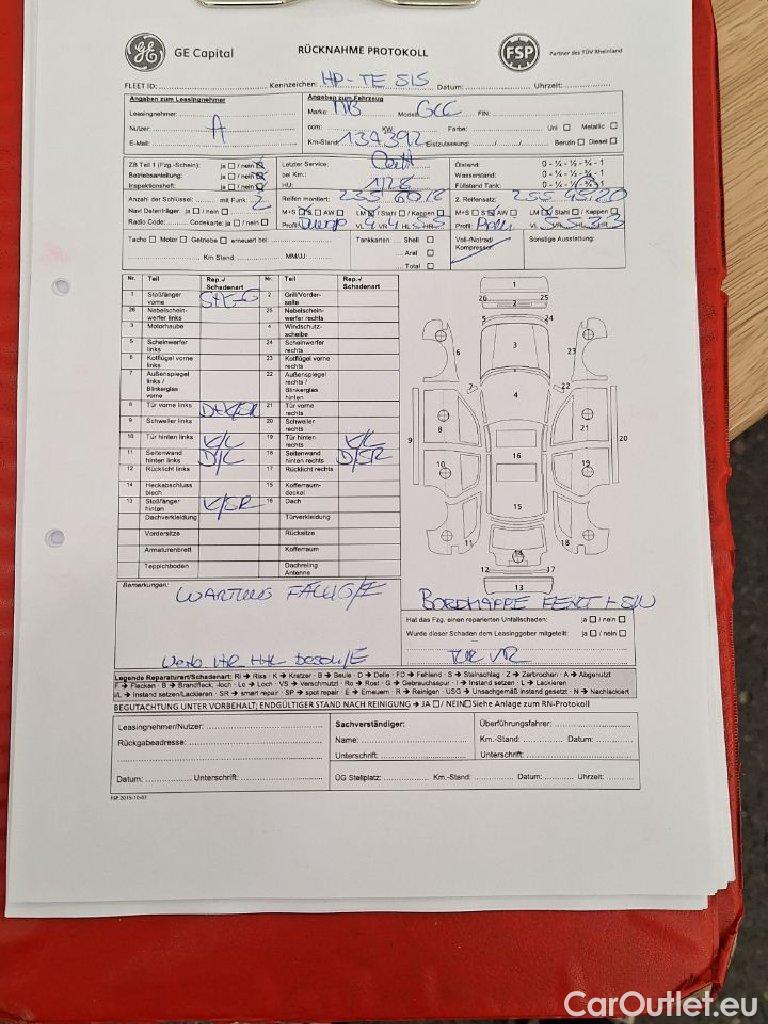 GE Capital RÜCKNAHME PROTOKOLL FSP Partner des TÜV Rheinland
FLEET ID: Kennzeichen: HP-TE 515 Datum: Uhrzeit:
Angaben zum Leasingnehmer Angaben zum Fahrzeug
Leasingnehmer: Marke: MB Modell: GLC FIN:
Nutzer: A ccm: KW: Farbe: Uni □ Metallic □
E-Mail: Km-Stand: 139392 Erstzulassung: Benzin □ Diesel □
ZB Teil 1 (Fzg.-Schein): ja □ / nein ☒ Letzter Service: Ölstand: 0 - ¼ - ½ - ¾ - 1
Betriebsanleitung: ja □ / nein ☒ bei Km: Wasserstand: 0 - ¼ - ½ - ¾ - 1
Inspektionsheft: ja □ / nein ☒ HU: Füllstand Tank: 0 - ¼ - ½ - ¾ - 1
Anzahl der Schlüssel: mit Funk: 2 Reifen montiert: 235 60 18 2. Reifensatz: 255 45/20
Navi Datenträger: ja □ / nein □ M+S □ S □ AW □ LM ☒ / Stahl □ / Kappen □ M+S □ S □ AW □ LM ☒ / Stahl □ / Kappen □
Radio Code: Codekarte: ja □ / nein □ Profil: VL VR HL HR Profil: VL 5 VR 5 HL 3 HR 3
Tacho □ Motor □ Getriebe □ erneuert bei Tankkarten: Shell □ Voll-/Notrad/ Sonstige Ausstattung:
Aral □ Kompressor
Km Stand: MM/JJ: Total □
Nr. Teil Rep.-/Schadenart Nr. Teil Rep.-/Schadenart
1 Stoßfänger vorne 2 Grill/Vorderseite
26 Nebelscheinwerfer links 25 Nebelscheinwerfer rechts
3 Motorhaube 4 Windschutzscheibe
5 Scheinwerfer links 24 Scheinwerfer rechts
6 Kotflügel vorne links 23 Kotflügel vorne rechts
7 Außenspiegel links / Blinkerglas vorne 22 Außenspiegel rechts / Blinkerglas hinten
8 Tür vorne links 21 Tür vorne rechts
9 Schweller links 20 Schweller rechts
10 Tür hinten links K/L 19 Tür hinten rechts K/L
11 Seitenwand hinten links D/L 18 Seitenwand hinten rechts D/SR
12 Rücklicht links 17 Rücklicht rechts
14 Heckabschluss blech 15 Kofferraumdeckel
13 Stoßfänger hinten K/SR 16 Dach
Dachverkleidung Türverkleidung
Vordersitze Rücksitze
Armaturenbrett Kofferraum
Teppichboden Dachreling Antenne
1
26 25
2
5 24
3
6 23
7 22
4
8 21
9 20
16
10 19
15
11 18
14
12 17
13
Bemerkungen: WARTUNG FÄLLIG/E
BORDMAPPE FEHLT
Hat das Fzg. einen reparierten Unfallschaden: ja □ / nein □
Wurde dieser Schaden dem Leasinggeber mitgeteilt: ja □ / nein □
TÜR VR
Legende Reparaturart/Schadenart: RI → Riss · K → Kratzer · B → Beule · D → Delle · FD → Fehlend · S → Steinschlag · Z → Zerbrochen · A → Abgenutzt
F → Flecken · B → Brandfleck, -loch · Lo → Loch · VS → Verschmutzt · Ro → Rost · G → Gebrauchsspur · I → Instand setzen · L → Lackieren
I/L → Instand setzen/Lackieren · SR → smart repair · SP → spot repair · E → Erneuern · R → Reinigen · USG → Unsachgemäß instand gesetzt · N → Nachlackiert
BEGUTACHTUNG UNTER VORBEHALT; ENDGÜLTIGER STAND NACH REINIGUNG → JA □ / NEIN □ Siehe Anlage zum RN-Protokoll
Leasingnehmer/Nutzer: Sachverständiger: Überführungsfahrer:
Rückgabeadresse: Name: Km.-Stand: Datum:
Unterschrift: Unterschrift:
Datum: Unterschrift: ÜG Stellplatz: Km.-Stand: Datum: Uhrzeit:
FSP, 2015-10-07
CarOutlet.eu